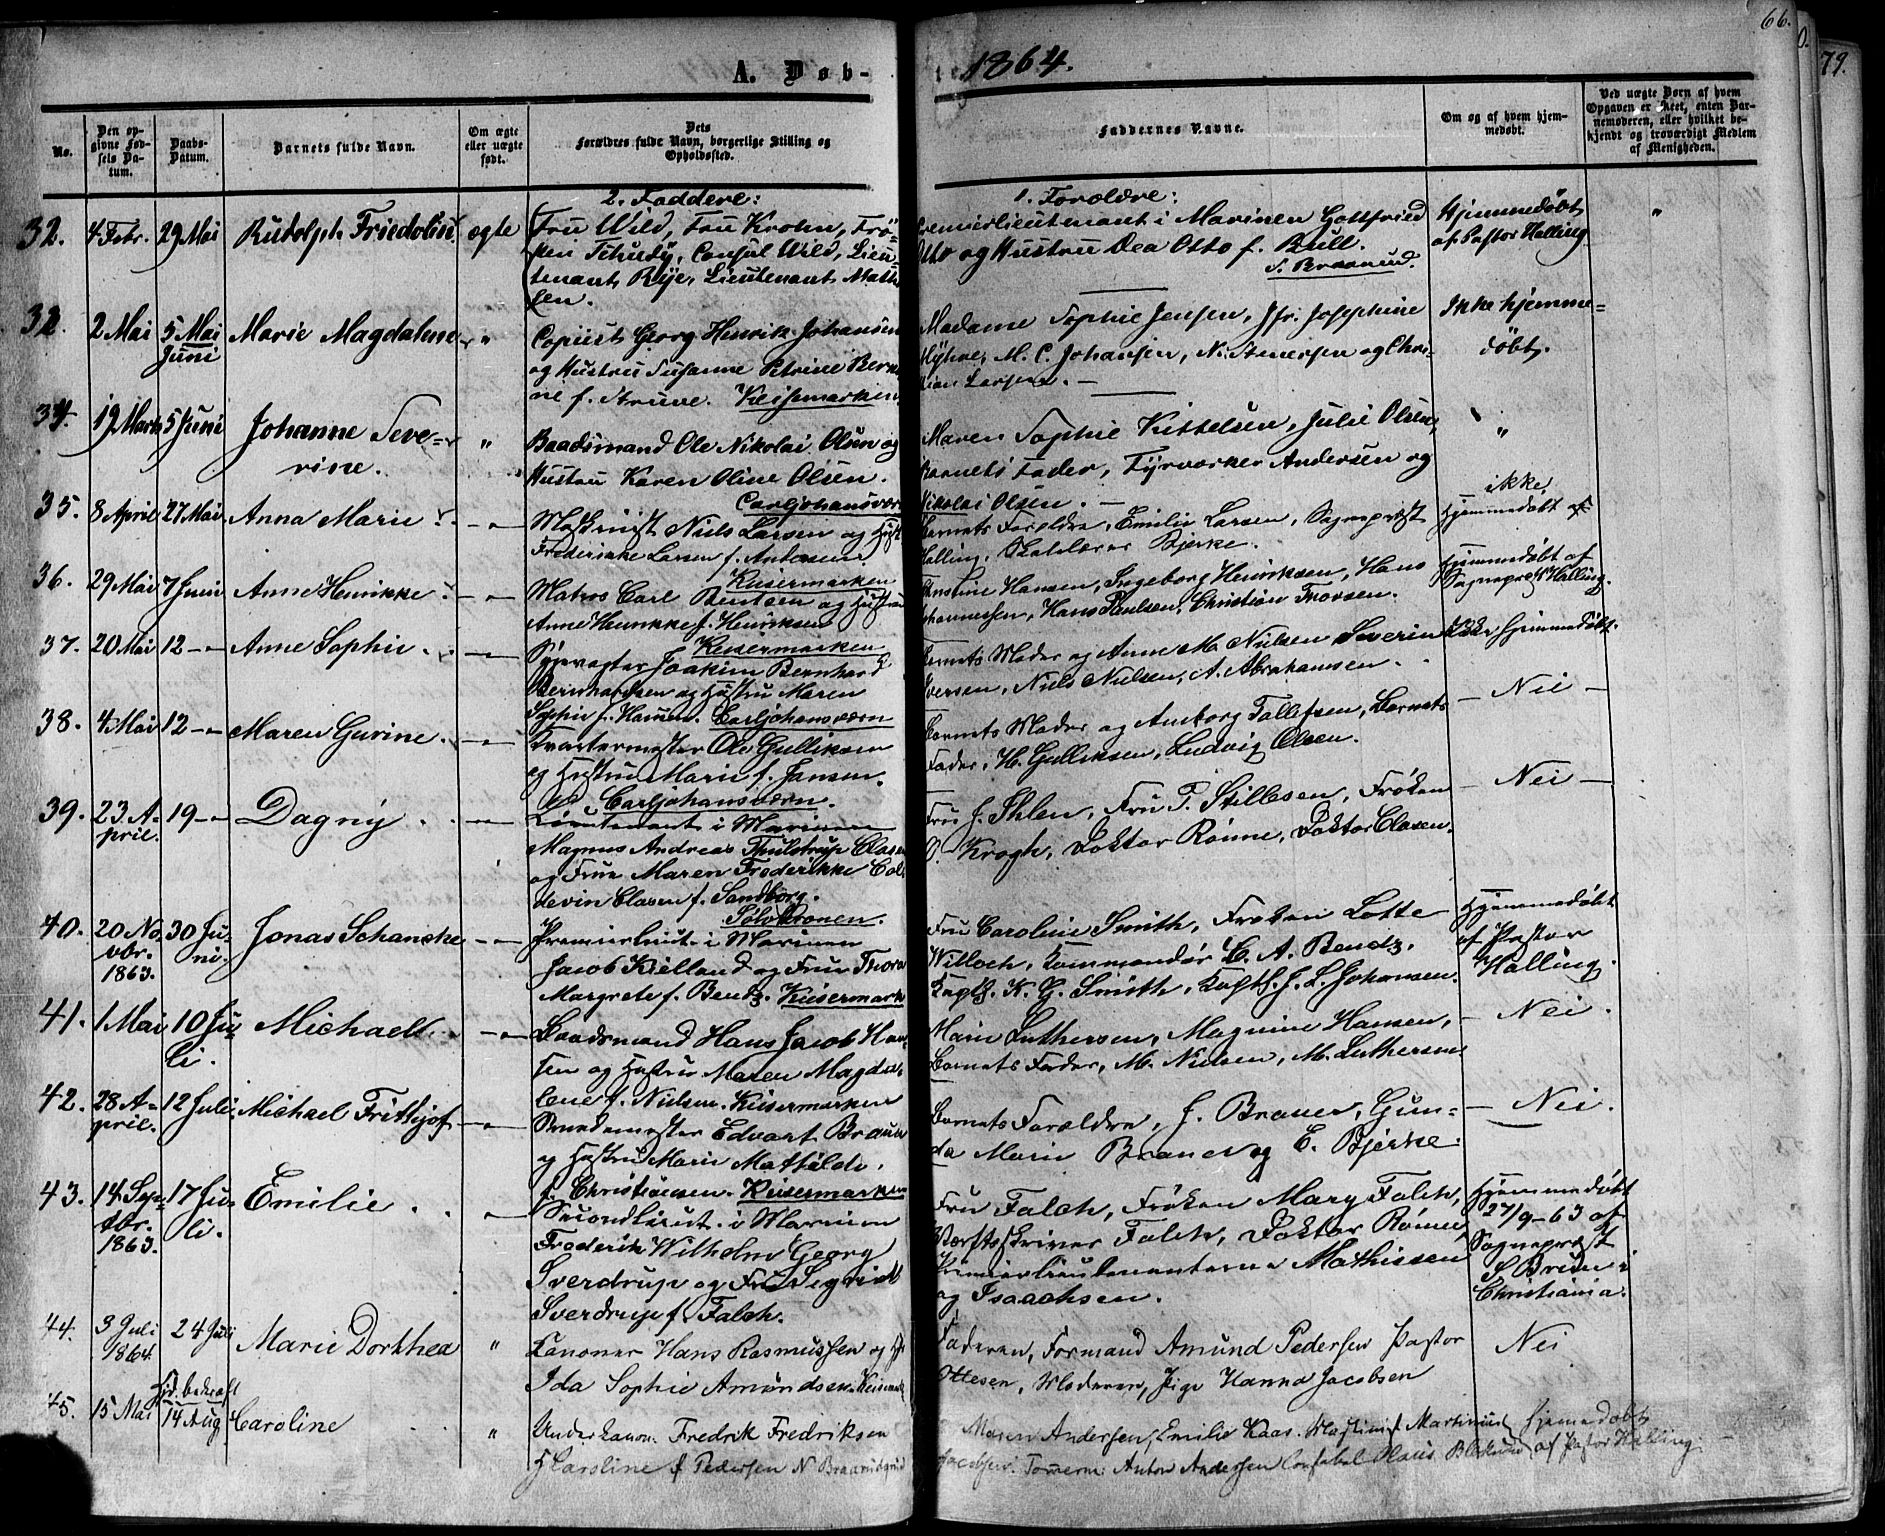 66.
79.
A. Døb-
1864.
No.
Den op-
givne Fød-
sels Da-
tum.
Daabs-
Datum.
Barnets fulde Navn.
Om ægte
eller uægte
født.
Dets
Forældres fulde Navn, borgerlige Stilling og
Opholdssted.
Faddernes Navne.
Om og af hvem hjem-
medøbt.
Ved uægte Børn af hvem
Opgaven er skeet, enten Bar-
nemoderen, eller hvilket be-
kjendt og troværdigt Medlem
af Menigheden.
2. Faddere:
1. Forældre:
32. 4 Febr. 29 Mai Rudolph Friedolin ægte
Fru Wild, Fru Krohn, Frö-
ken Tchudy, Consul Wild, Lieu-
tenant Rye, Lieutenant Mathi
sen.
Premierlieutenant i Marinen Gottfried
Otto og Hustru Dea Otto f. Bull.
N. Braarud.
Hjemmedöbt
af Pastor Halling.
32. 2 Mai 5 Mai Juni Marie Magdalene "
Copiist Georg Henrik Johansen
og Hustru Susanne Petrine Bern
ne f. Struve. Keisemarken
Madame Sophie Jensen, Jfr. Josephine
Myhre, M. C. Johansen, N. Stenersen og Chri-
stian Larsen. —
Ikke hjemme-
döbt.
34. 19 Marts 5 Juni Johanne Seve-
rine. "
Baadsmand Ole Nikolai Olsen og
Hustru Karen Oline Olsen.
Carljohansværn
Maren Sophie Kittelsen, Julie Olsen,
Barnets Fader, Fyrværker Andersen og
Nikolai Olsen. —
"
35. 8 April 27 Mai Anna Marie — " —
Maskinist Niels Larsen og Hust
Frederikke Larsen f. Andersen.
Keisermarken
Barnets Forældre, Emilie Larsen, Sognepræst
Halling, Skolelærer Bjerke.
ikke
Hjemmedøbt af
36. 29 Mai 7 Juni Anne Henrikke. — " —
Matros Carl Berntsen og Hustru
Anne Henrikke f. Henriksen
Keisermarken
Christine Hansen, Ingeborg Henriksen, Hans
Johannessen, Hans Paulsen, Christian Thorsen.
Hjemmedøbt af
Sognepræst Halling.
37. 20 Mai 12 — " Anne Sophie. — " —
Joakim Bernhard
Bernhardsen og Hustru Maren
Sophie f. Hansen. Carljohansværn
Barnets Moder og Anne M. Nielsen Severin
Iversen, Niels Nielsen, A. Abrahamsen.
Ikke hjemmedøbt.
38. 4 Mai 12 — " Maren Gurine. — " —
Kvartermester Ole Gulliksen
og Hustru Marie f. Jansen.
Carljohansværn.
Barnets Moder og Amborg Tollefsen, Barnets
Fader, H. Gulliksen, Ludvig Olsen.
— Nei —
39. 23 A-
pril. 19 — " Dagny — " —
Lieutenant i Marinen
Magnus Andreas Thulstrup Clasen
og Frue Maren Frederikke Col-
devin Clasen f. Sandborg.
Sølvkronen.
Fru J. Ihlen, Fru P. Stillesen, Frøken
O. Krogh, Doktor Rønne, Doktor Clasen.
— Nei —
40. 20 No-
vbr.
1863. 30 Ju-
ni. Jonas Schancke — " —
Premierlieut. i Marinen
Jacob Kielland og Frue Thora
Margrete f. Bendz. Keisermark
Fru Caroline Smith, Frøken Lotte
Willoch, Kommandør C. A. Bendz.
Kapt. K. G. Smith, Kapt. J. L. Johansen.
Hjemmedøbt
af Pastor
Halling.
41. 1 Mai 10 Ju-
li. Michael. — " —
Baadsmand Hans Jacob Han-
sen og Hustru Maren Magda-
lene f. Nielsen. Keisermarken
Marie Luthersen, Magnine Hansen,
Barnets Fader, M. Nielsen, M. Luthersen.
— Nei.
42. 28 A-
pril. 12 Juli. Michael Frithjof — " —
Smedemester Edvart Brauer
og Hustru Marie Mathilde
f. Christiansen. Keisermarken
Barnets Forældre, J. Brauer, Gun-
da Marie Brauer og E. Bjerke.
— Nei.
43. 14 Sep-
tbr.
1863. 17 Ju-
li. Emilie. — " —
Secondlieut. i Marinen
Frederik Wilhelm Georg
Sverdrup og Fru Sigrid
Sverdrup f. Falch.
Fru Falch, Frøken Mary Falch,
Værftsskriver Falch, Doktor Rønne
Premierlieutenanterne Mathissen
og Isaachsen.
Hjemmedøbt
27/9-63 af
Sognepræst
S Bruun i
Christiania.
44. 3 Juli
1864. 24 Juli Marie Dorthea "
Kanoner Hans Rasmussen og H
Ida Sophie Amundsen.
Faderen, Formand Amund Pedersen Pastor
Ottesen, Moderen, Pige Hanna Jacobsen
Nei
45. 15 Mai bekræft
14 Aug Caroline "
Underkanon. Fredrik Fredriksen
H Caroline f Pedersen N Braarud
Maren Andersen, Emilie Kaas. Maskinist Martinius
Jacobsen. Anton Andersen
hjemedøbt
af Pastor Halling